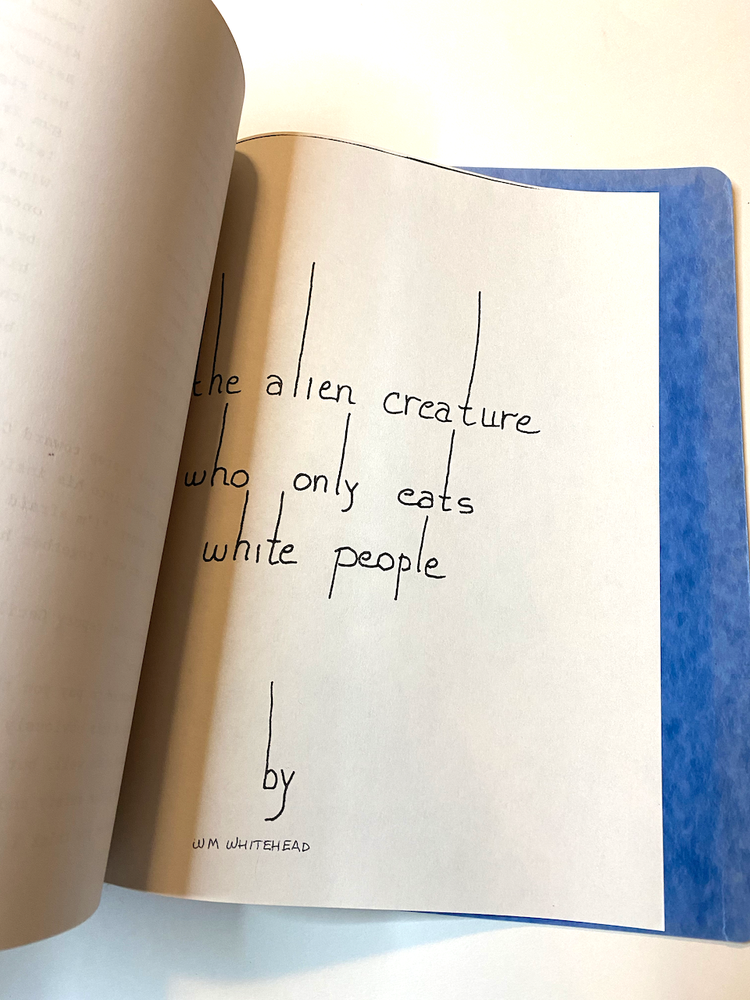 the alien creature
who only eats
white people
by
WM WHITEHEAD